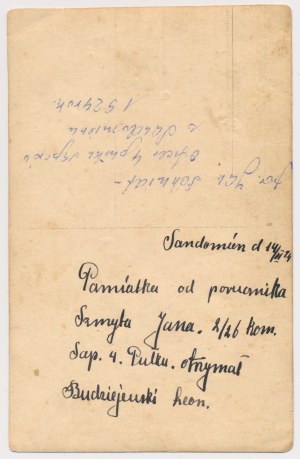 por. Jan Schmidt -
oficer 4 pułku Saperów
z Sandomierza
1924 rok.
Sandomierz d 14/III 24
Pamiątka od porucznika
Szmyta Jana. 2/26 kom.
Sap. 4. Pułku. Otrymał
Budziejewski Leon.